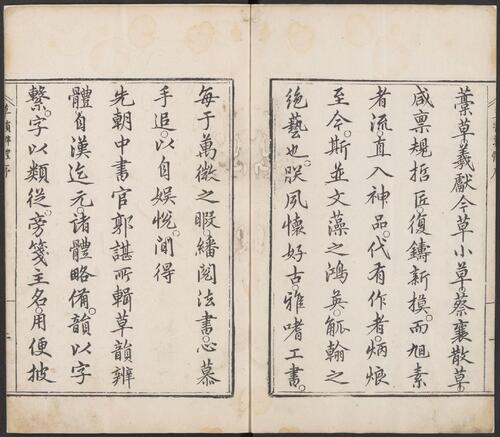 藁草羲獻今草小草蔡襄散草
咸稟規哲匠復鑄新模而旭素
者流直入神品代有作者炳烺
至今斯並文藻之鴻英觚翰之
絶藝也朕夙懷好古雅嗜工書
每于萬㡬之暇繙閱法書心慕
手追以自娛悅閒得
先朝中書官郭諶所輯草韻辨
體自漢迄元諸體略備韻以字
繫字以類從旁箋主名用便披
草韻辨體序